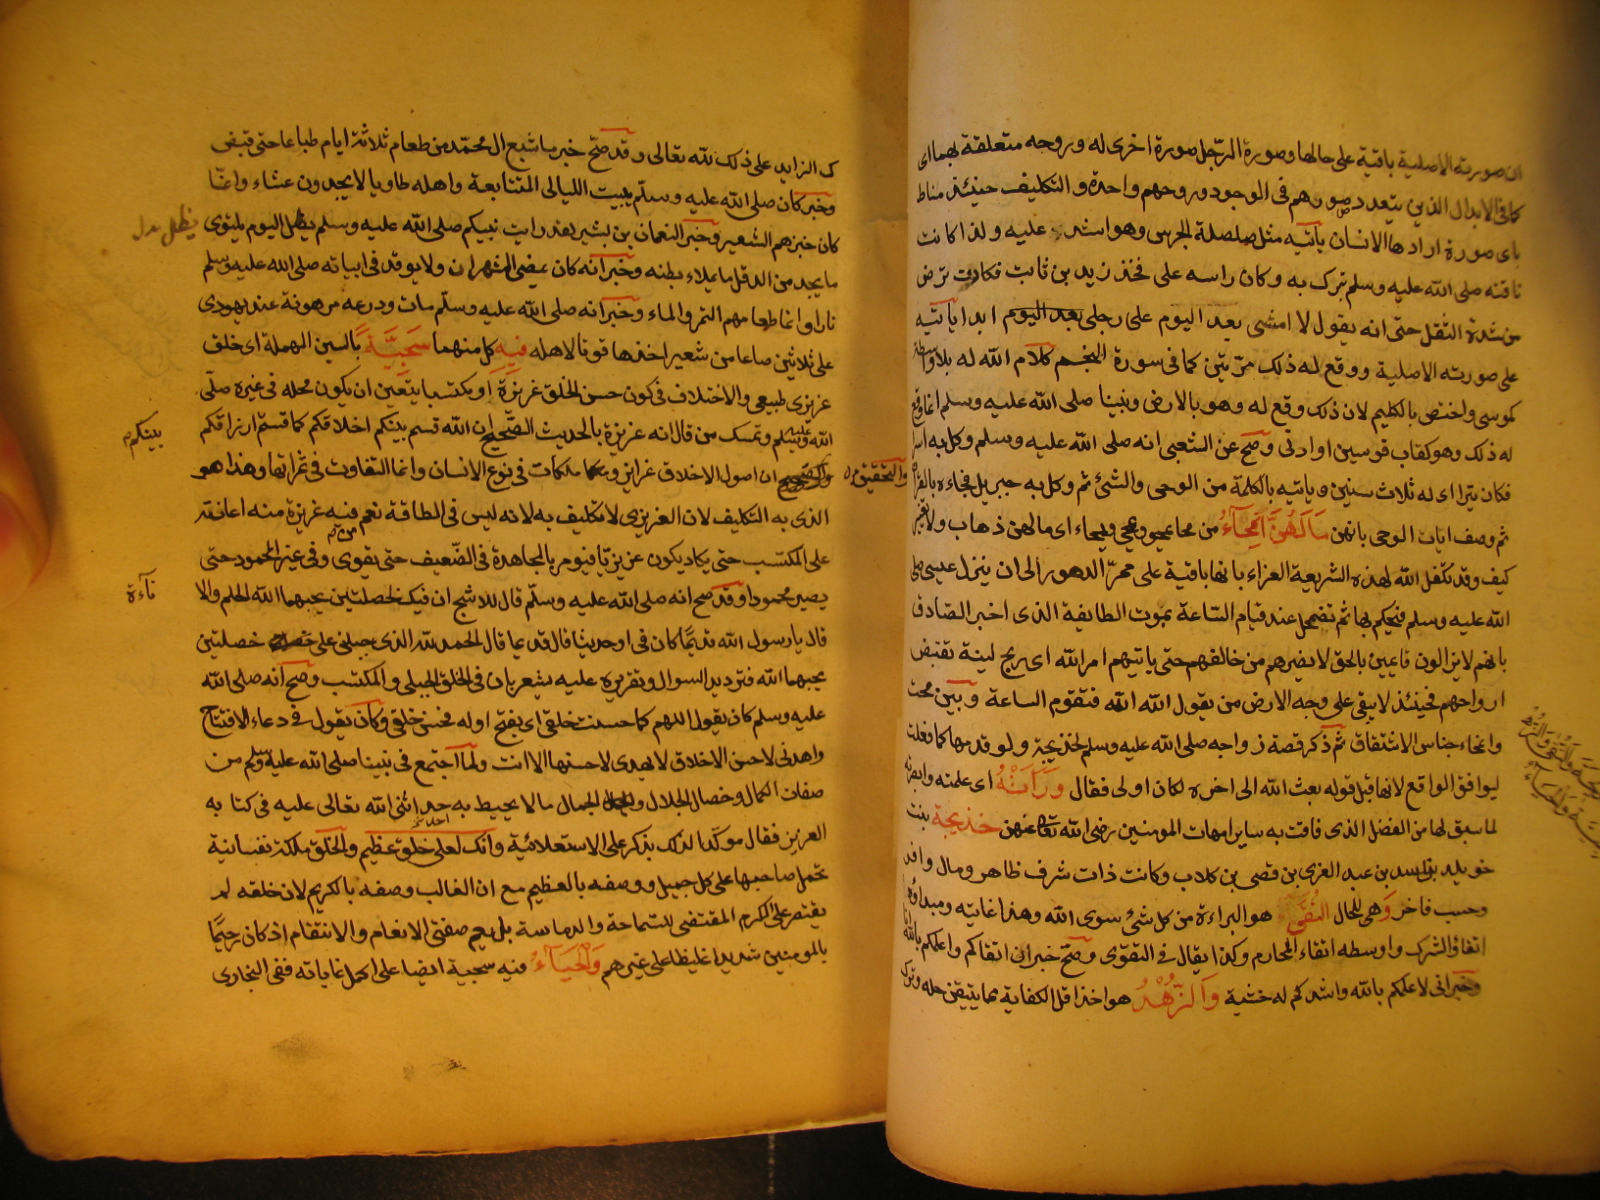 ان صورته الاصلية باقية على حالها وصورة الرجل صورة اخرى له وروحه متعلقة بهما اى
كما فى الابدال الذين يتعدد صورهم فى الوجود وروحهم واحدة والتكليف حينئذ مناط
باى صورة ارادها الانسان ياتيه مثل صلصلة الجرس وهو اشده عليه ولذا كانت
ناقته صلى الله عليه وسلم تبرك به وكان راسه على فخذ زيد بن ثابت فكادت ترض
من شدة الثقل حتى انه يقول لا امشى بعد اليوم على رجلى بعد اليوم ابدا ياتيه
على صورته الاصلية ووقع له ذلك مرتين كما فى سورة النجم كلام الله له بلا واسطة
كموسى واختص بالكليم لان ذلك وقع له وهو بالارض ونبينا صلى الله عليه وسلم انما وقع
له ذلك وهو كقاب قوسين او ادنى وصح عن الشعبى انه صلى الله عليه وسلم وكل به اسرا
فكان يترااى له ثلاث سنين وياتيه بالكلمة من الوحى والشئ ثم وكل به جبريل فجاءه بالقرآن
ثم وصف ايات الوحى بانهن مَا لَهُنَّ اِمْحَاءُ من محا يمحو ويمحى ويمحاء اى ما لهن ذهاب ولا تغير
كيف وقد تكفل الله لهذه الشريعة الغراء بانها باقية على ممر الدهور الى ان ينزل عيسى صلى
الله عليه وسلم فيحكم بها ثم تضمحل عند قيام الساعة بموت الطايفة الذى اخبر الصادق
بانهم لا يزالون قايمين بالحق لا يضرهم من خالفهم حتى ياتيهم امر الله اى ريح لينة تقبض
ارواحهم فحينئذ لا يبقى على وجه الارض من يقول الله الله فتقوم الساعة وبين محت
وانحاء جناس الاشتقاق ثم ذكر قصة زواجه صلى الله عليه وسلم لخديجة ولو قدمها كما فعلت
ليوافق الواقع لانها قبل قوله بعث الله الى اخره لكان اولى فقال وَرَاَتْهُ اى علمته وابصرته
لما سبق لها من الفضل الذى فاقت به ساير امهات المومنين رضى الله تعالى عنهن خديجة بنت
خويلد بن اسد بن عبد العزى بن قصى بن كلاب وكانت ذات شرف ظاهر ومال وافر
وحسب فاخر وَهى للحال التُّقَى هو البراءة من كل شئ سوى الله وهذا غايته ومبداؤه
اتقاؤ الشرك واوسطه اتقاء المحارم وكذا يقال فى التقوى وصح خبر انى اتقاكم واعلمكم بالله
وخبر انى لاعلمكم بالله واشدكم له خشية وَالزُّهْدُ هو اخذ اقل الكفاية مما يتيقن حله وترك
ك الزايد على ذلك لله تعالى وقد صح خبر ما شبع ال محمد من طعام ثلاثة ايام طباعا حتى قبض
وخبر كان صلى الله عليه وسلم يبيت الليالى المتتابعة واهله طاويا لا يجدون عشاء وانما
كان خبزهم الشعير وخبر النعمان بن بشير لقد رايت نبيكم صلى الله عليه وسلم يظل اليوم يلتوى
يظل
ما يجد من الدقل ما يملاء بطنه وخبر انه كان يمضى الشهران ولا يوقد فى ابياته صلى الله عليه وسلم
نارا وانما طعامهم التمر والماء وخبر انه صلى الله عليه وسلم مات ودرعه مرهونة عند يهودى
على ثلاثين صاعا من شعير اخذها قوتا لاهله فيه كل منهما سَجِيَّةً بالسين المهملة اى خلق
غريزى طبيعى والاختلاف فى كون حسن الخلق غريزة او مكتسبا يتعين ان يكون محله فى غيره صلى
الله عليه وسلم وتمسك من قال انه غريزة بالحديث الصحيح ان الله قسم بينكم اخلاقكم كما قسم ارزاقكم
بينكم
والتحقيق
ان اصول الاخلاق غرايز وملكات فى نوع الانسان وانما التفاوت فى ثمراتها وهذا هو
الذى به التكليف لان الغريزى لا تكليف به لانه ليس فى الطاقة نعم فيه غريزة منه اعانته
على المكتسب حتى يكاد يكون غريزيا فيومر بالمجاهدة فى الضعيف حتى يقوى وفى غير المحمود حتى
يصير محمودا وقد صح انه صلى الله عليه وسلم قال للاشج ان فيك لخصلتين يحبهما الله الحلم والا
ناءة
قال يا رسول الله قديما كان فى او حديثا قال قديما قال الحمد لله الذى جبلنى على خصلتين
يحبهما الله فترديد السوال وتقريره عليه يشعر بان فى الخلق الجبلى والمكتسب وصح انه صلى الله
عليه وسلم كان يقول اللهم كما حسنت خلقى اى بفتح اوله فحسن خلقى وكان يقول فى دعاء الافتتاح
واهدنى لاحسن الاخلاق لا يهدى لاحسنها الا انت ولما اجتمع فى نبينا صلى الله عليه وسلم من
صفات الكمال وخصال الجلال والجمال ما لا يحيط به حد اثنى الله تعالى عليه فى كتابه
العزيز فقال موكدا لذلك بذكر على الاستعلائية وانك لعلى خلق عظيم والخلق ملكة نفسانية
تحمل صاحبها على كل جميل ووصفه بالعظيم مع ان الغالب وصفه بالكريم لان خلقه لم
يقتصر على الكرم المقتضى للسماحة والدماسة بل يعم صفتى الانعام والانتقام اذ كان رحيما
بالمومنين شديدا غليظا على غيرهم وَالْحَيَاءُ فيه سجية ايضا على اكمل غاياته ففى البخارى